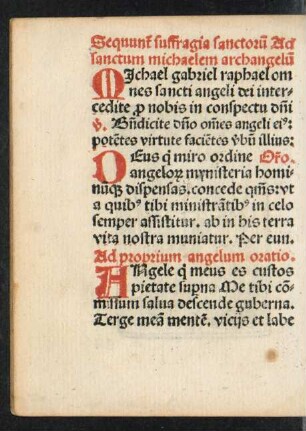 Sequunt᷑ suffragia sanctorū Ad
sanctum michaelem archangelū
MIchael gabriel raphael om
nes sancti angeli dei inter-
cedite ꝓ nobis in conspectu dn̄i
℣. Bn̄dicite dn̄o om̄es angeli eiꝰ:
potētes virtute faciētes v̄bū illius:
DEus q̇ miro ordine Oŕo.
angeloꝝ mynisteria homi
nūqꝫ dispensas. concede qm̄s: vt
a quibꝰ tibi ministrātibꝰ in celo
semper assistitur. ab in his terra
vita nostra muniatur. Per eun.
Ad proprium angelum oratio.
ANgele q̇ meus es custos
pietate supna Me tibi cō-
missum salua descende guberna.
Terge meā mentē. vicijs et labe